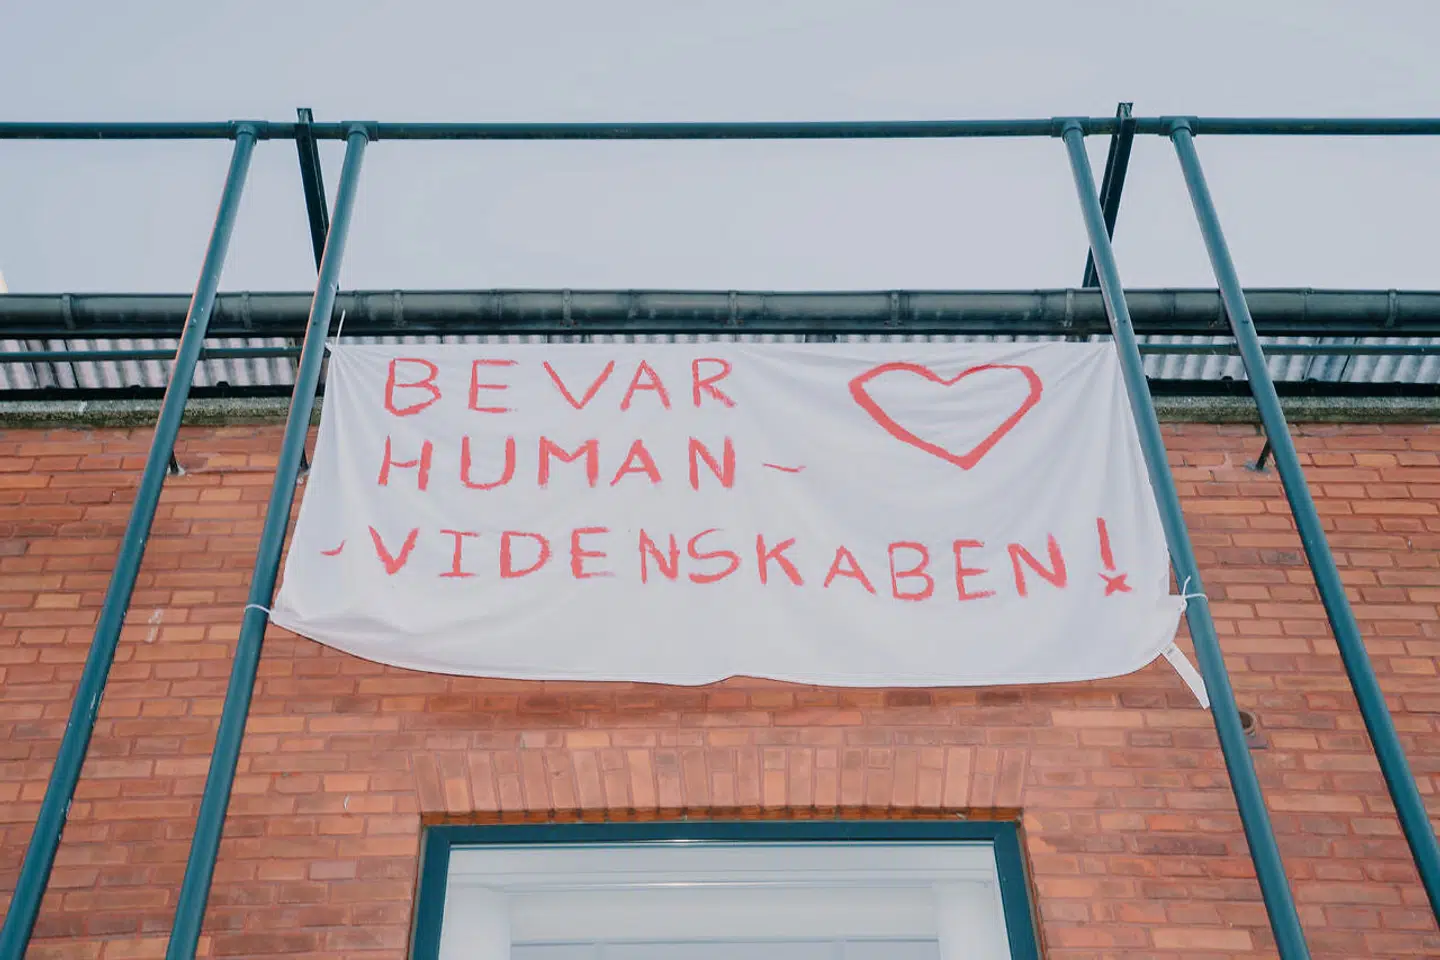 BEVAR
HUMAN-
-VIDENSKABEN!